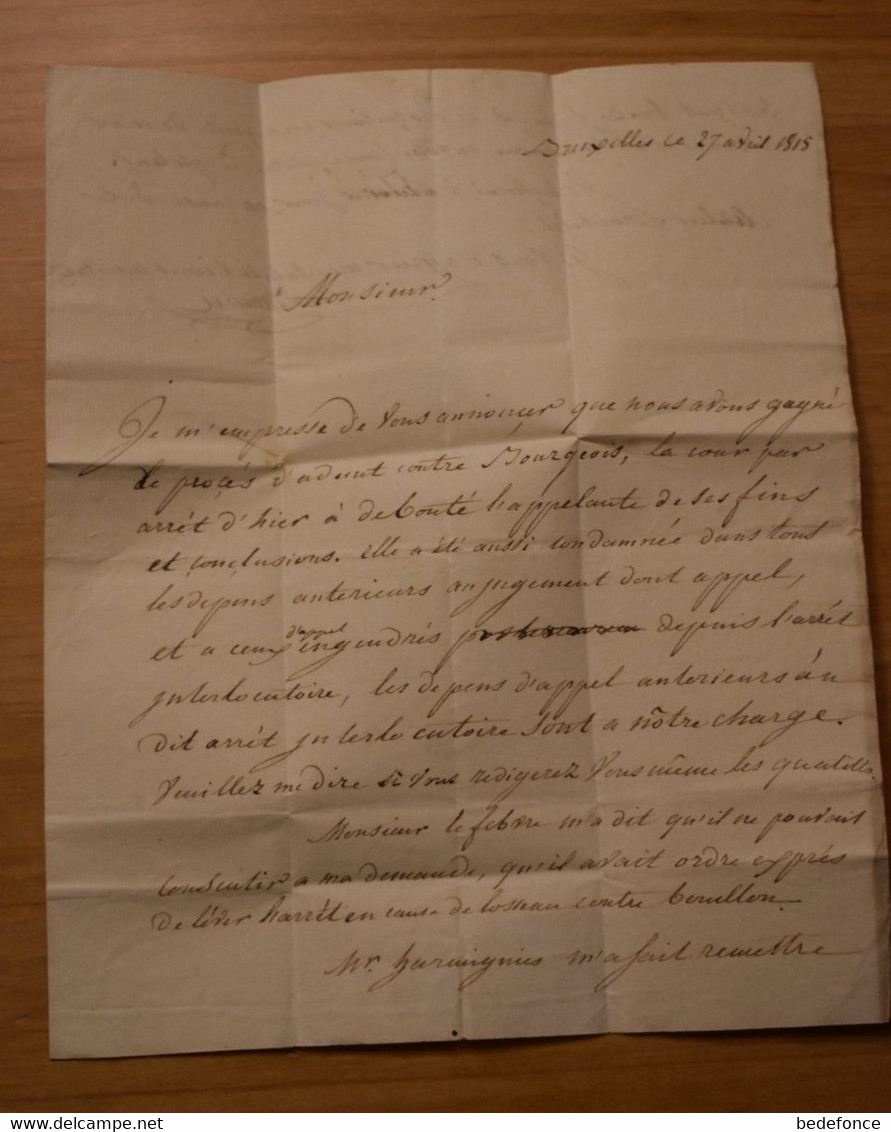 Bruxelles le 27 avril 1815
Monsieur.
Je m'empresse de vous annoncer que nous avons gagné
le procès d'adent contre Bourgeois, la cour par
arrét d'hier à debouté l'appelante de ses fins
et conclusions. elle a été aussi condamnée dans tous
les depens anterieurs au jugement dont appel,
d'appel
et a ceux ingendrés depuis l'arrét
jnterlocutoire, les depens d'appel anterieurs au
dit arrét jnterlocutoire sont a nôtre charge.
Veuillez me dire si vous redigerez vous même les qualités.
Monsieur lefebvre m'a dit qu'il ne pouvait
consentir a ma demande, qu'il avait ordre exprés
de léver l'arrét en cause de losseau contre bouillon.
Mr. harmignies m'a fait remettre
www.delcampe.net
bedefonce